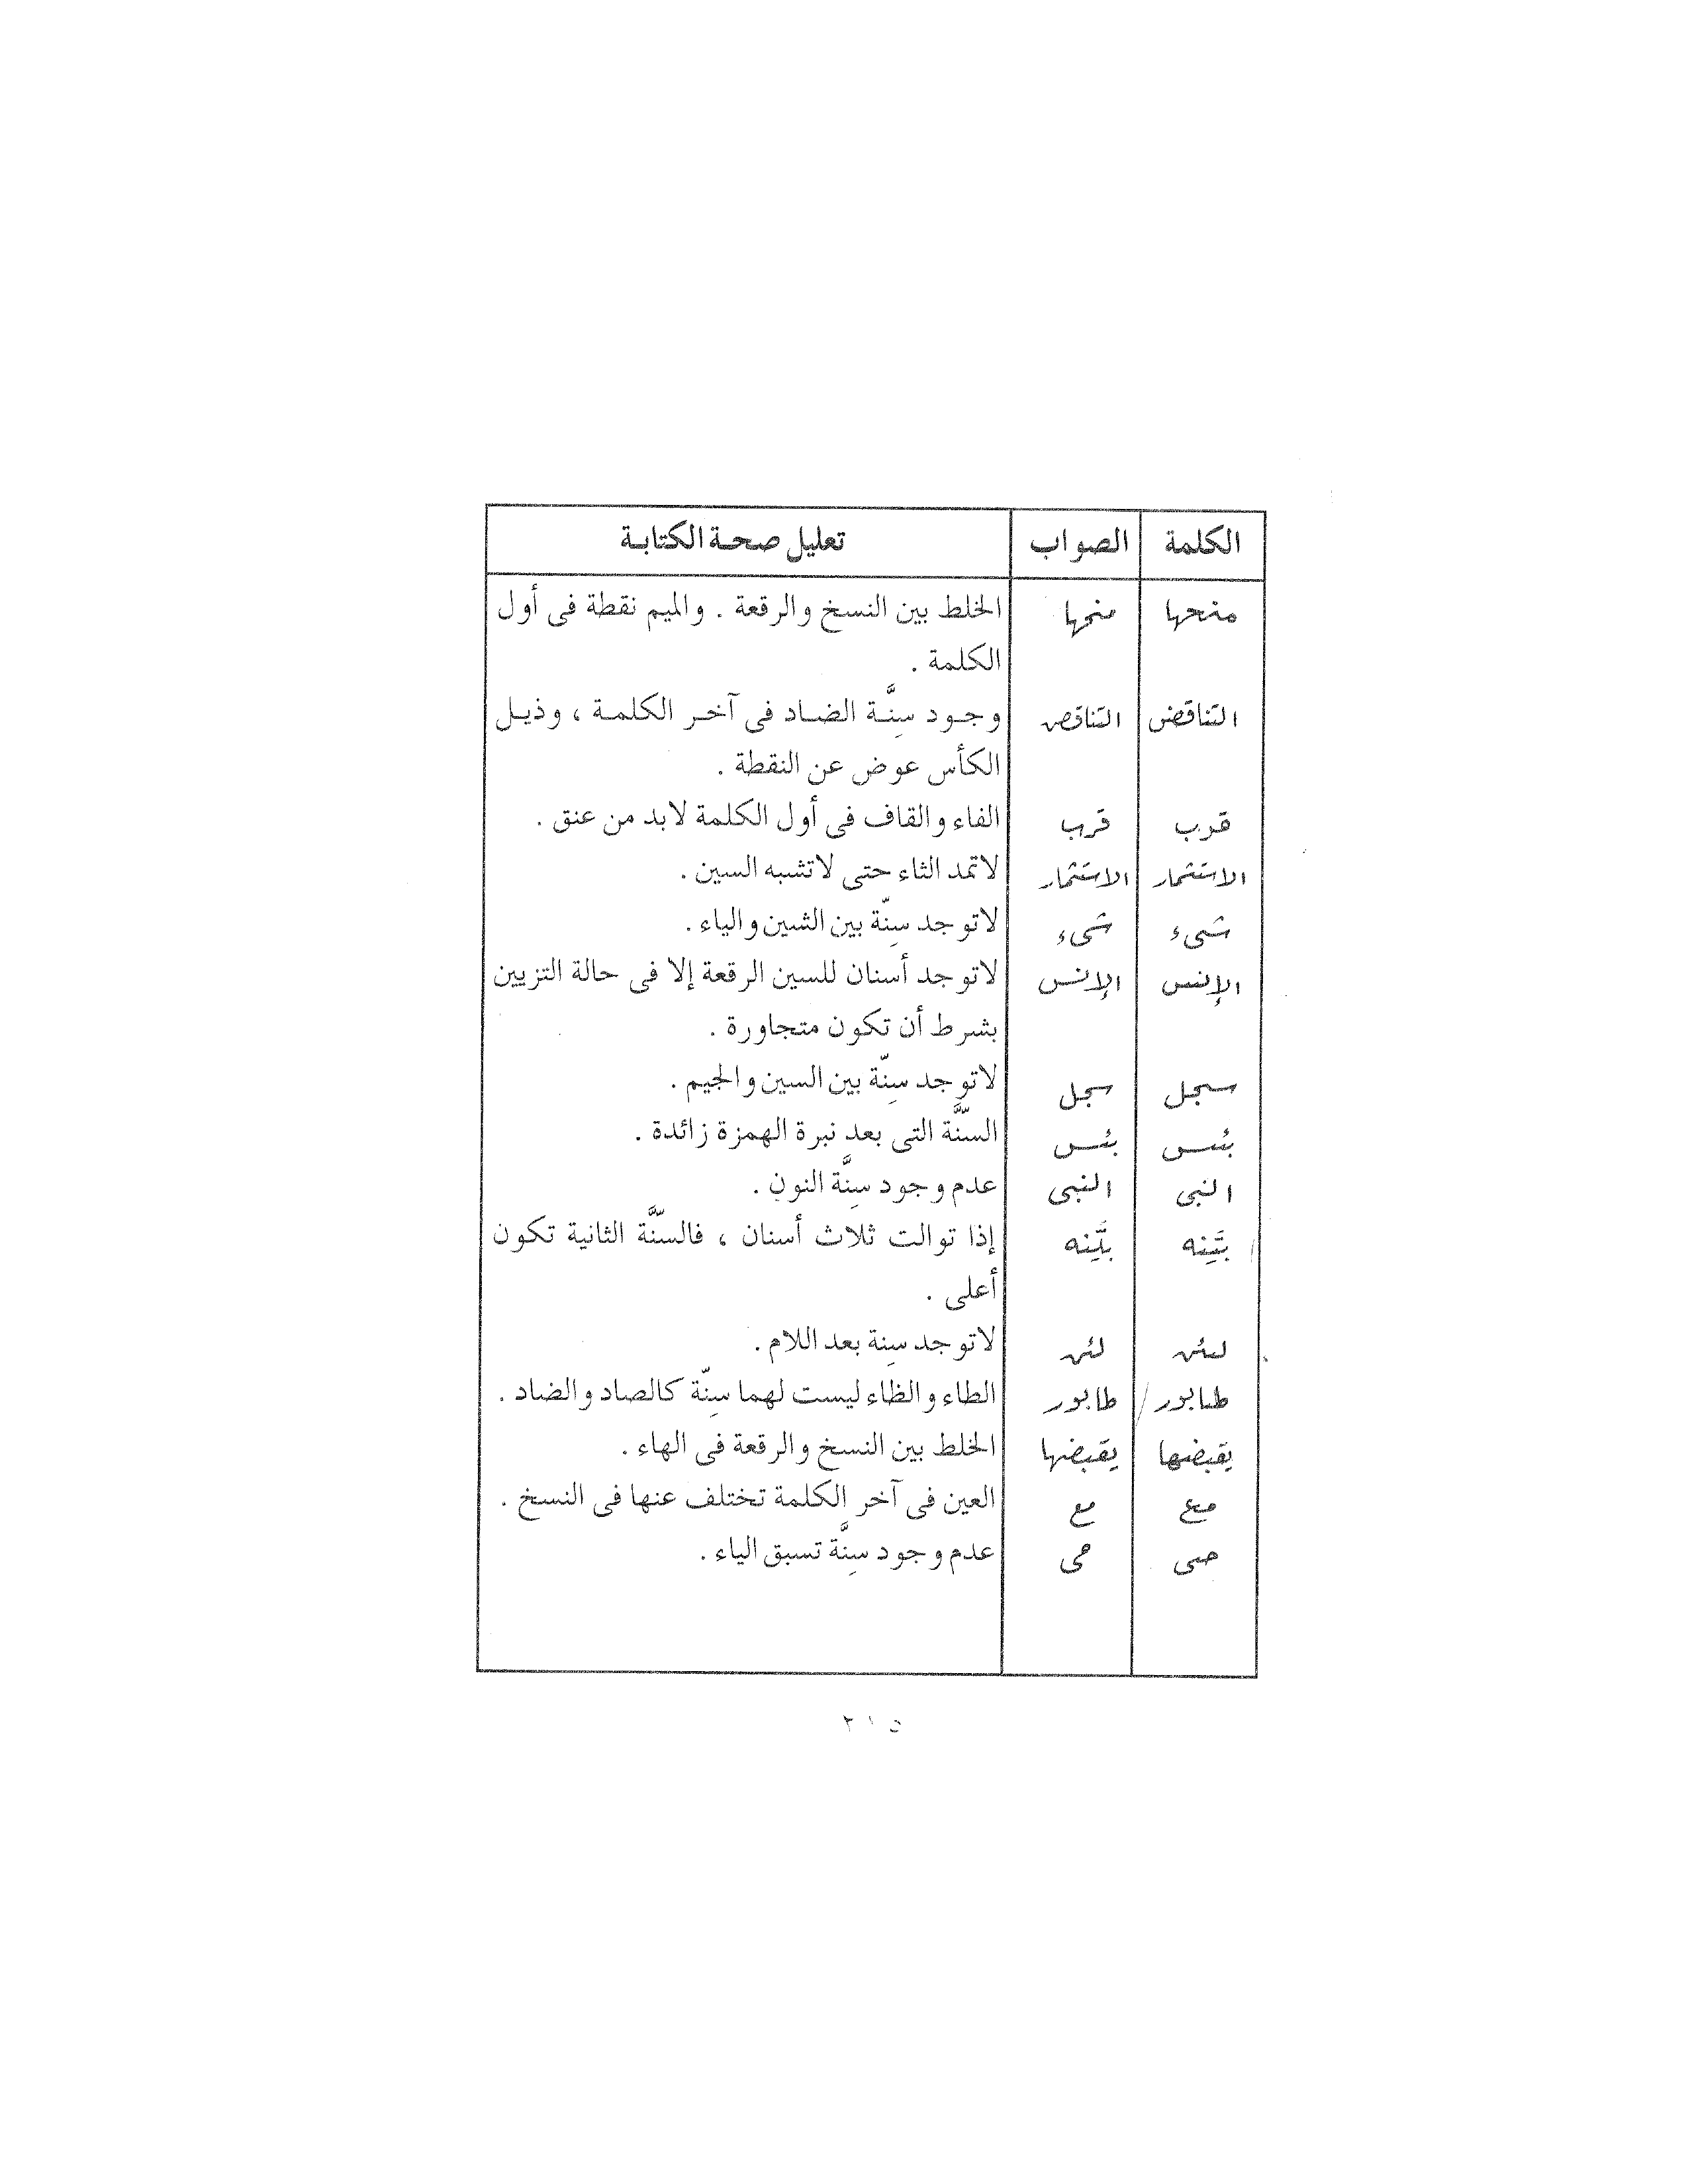 الكلمة الصواب تعليل صحة الكتابة
منحها منحها الخلط بين النسخ والرقعة . والميم نقطة فى أول
الكلمة .
التناقض التناقض وجود سِنَّة الضاد فى آخر الكلمة ، وذيل
الكأس عوض عن النقطة .
قرب قرب الفاء والقاف فى أول الكلمة لابد من عنق .
الاستثمار الاستثمار لاتمد الثاء حتى لاتشبه السين .
شىء شىء لاتوجد سِنّة بين الشين والياء .
الإنس الإنس لاتوجد أسنان للسين الرقعة إلا فى حالة التزيين
بشرط أن تكون متجاورة .
سجل سجل لاتوجد سِنّة بين السين والجيم .
بئس بئس السّنَّة التى بعد نبرة الهمزة زائدة .
النبى النبى عدم وجود سِنَّة النون .
بيّنه بيّنه إذا توالت ثلاث أسنان ، فالسّنَّة الثانية تكون
أعلى .
لئن لئن لاتوجد سِنة بعد اللام .
طابور طابور الطاء والظاء ليست لهما سِنّة كالصاد والضاد .
يقبضها يقبضها الخلط بين النسخ والرقعة فى الهاء .
مع مع العين فى آخر الكلمة تختلف عنها فى النسخ .
حى حى عدم وجود سِنَّة تسبق الياء .